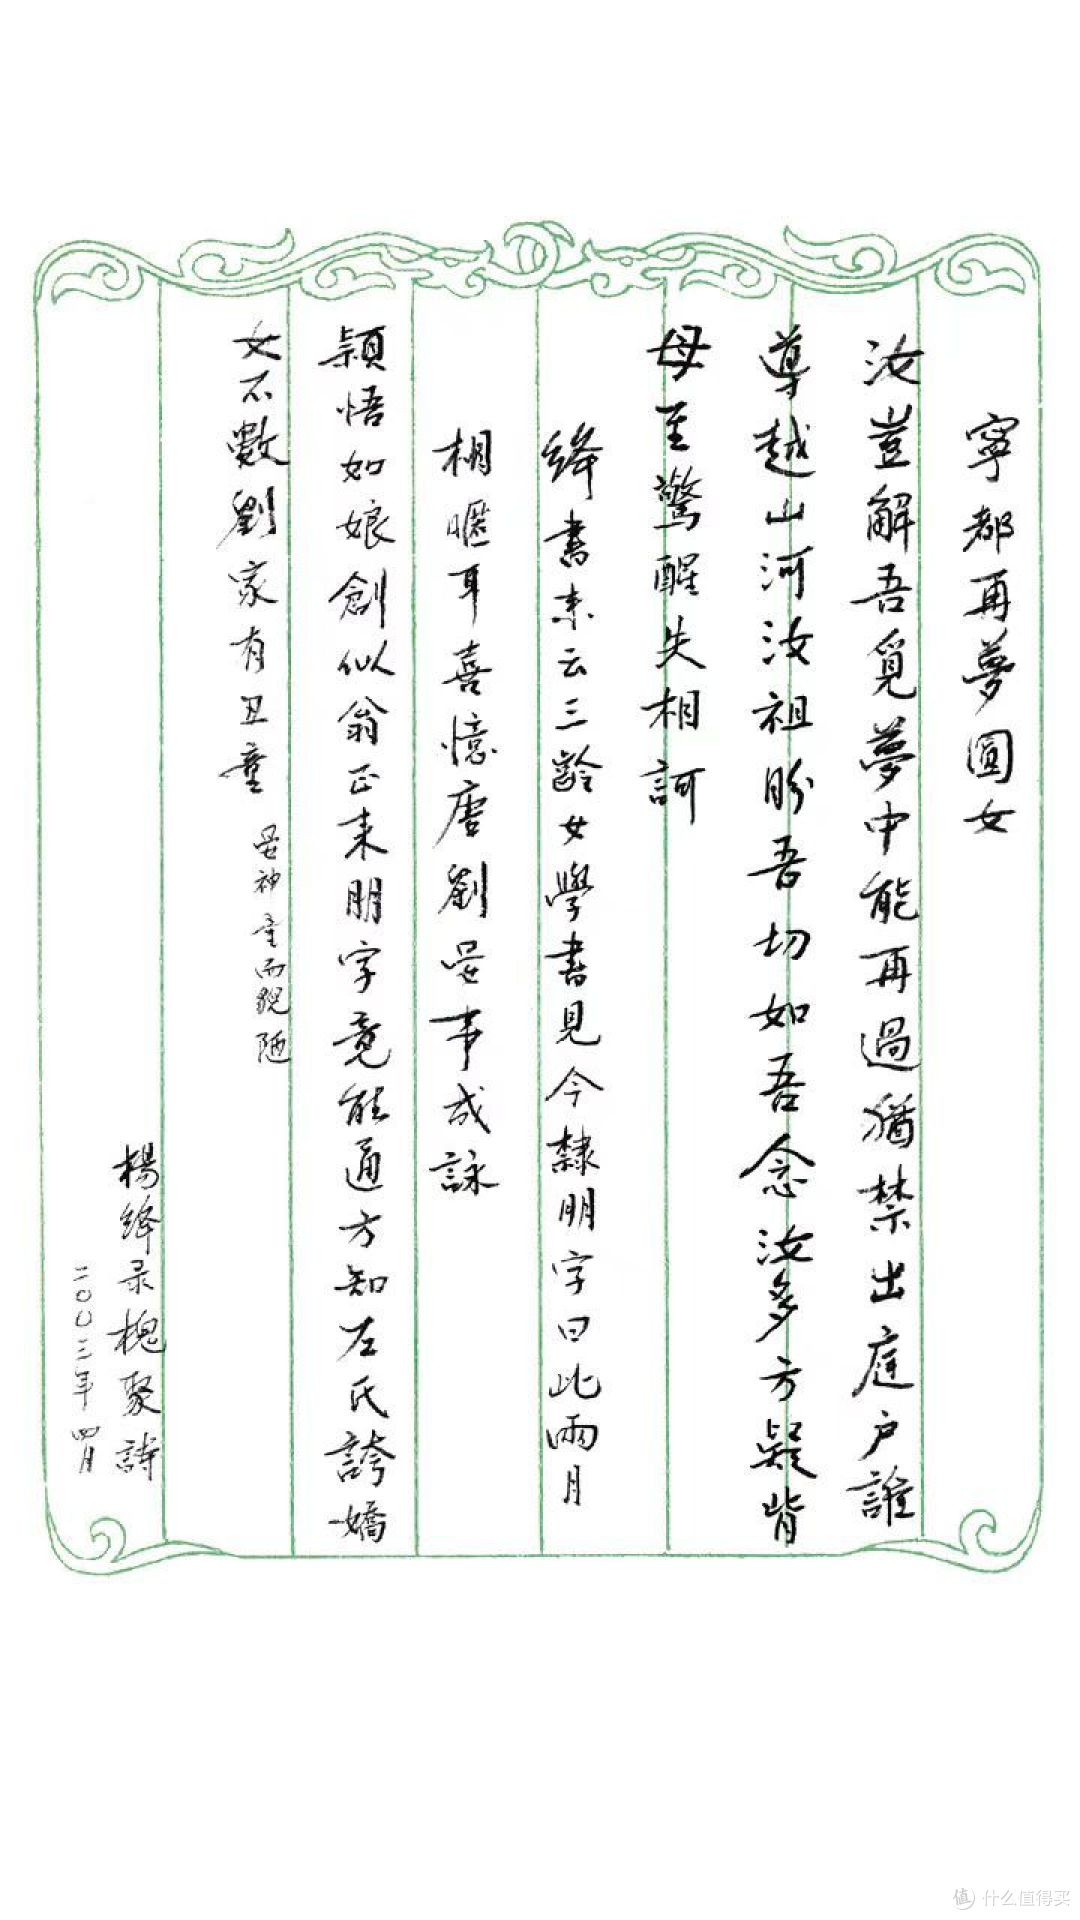 寧都再夢圓女
汝豈解吾覓夢中能再過猶禁出庭户誰
導越山河汝祖盼吾切如吾念汝多方疑背
母至驚醒失相訶
絳書來云三齡女學書見今隸朋字曰此兩月
相暱耳喜憶唐劉晏事成詠
穎悟如娘創似翁正来朋字竟能通方知左氏誇嬌
女不數劉家有丑童 晏神童而貌陋
楊絳录槐聚詩
二〇〇三年四月
值 什么值得买